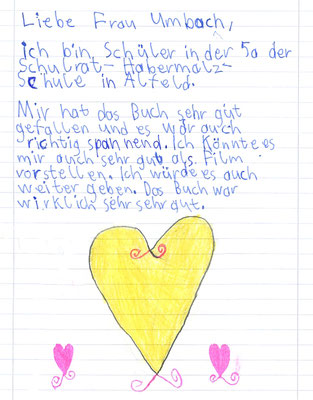 Liebe Frau Umbach,
ich bin Schüler in der 5a der
Schulrat-Habermalz-
Schule in Alfeld.
Mir hat das Buch sehr gut
gefallen und es war auch
richtig spannend. Ich könnte es
mir auch sehr gut als Film
vorstellen. Ich würde es auch
weiter geben. Das Buch war
wirklich sehr sehr gut.